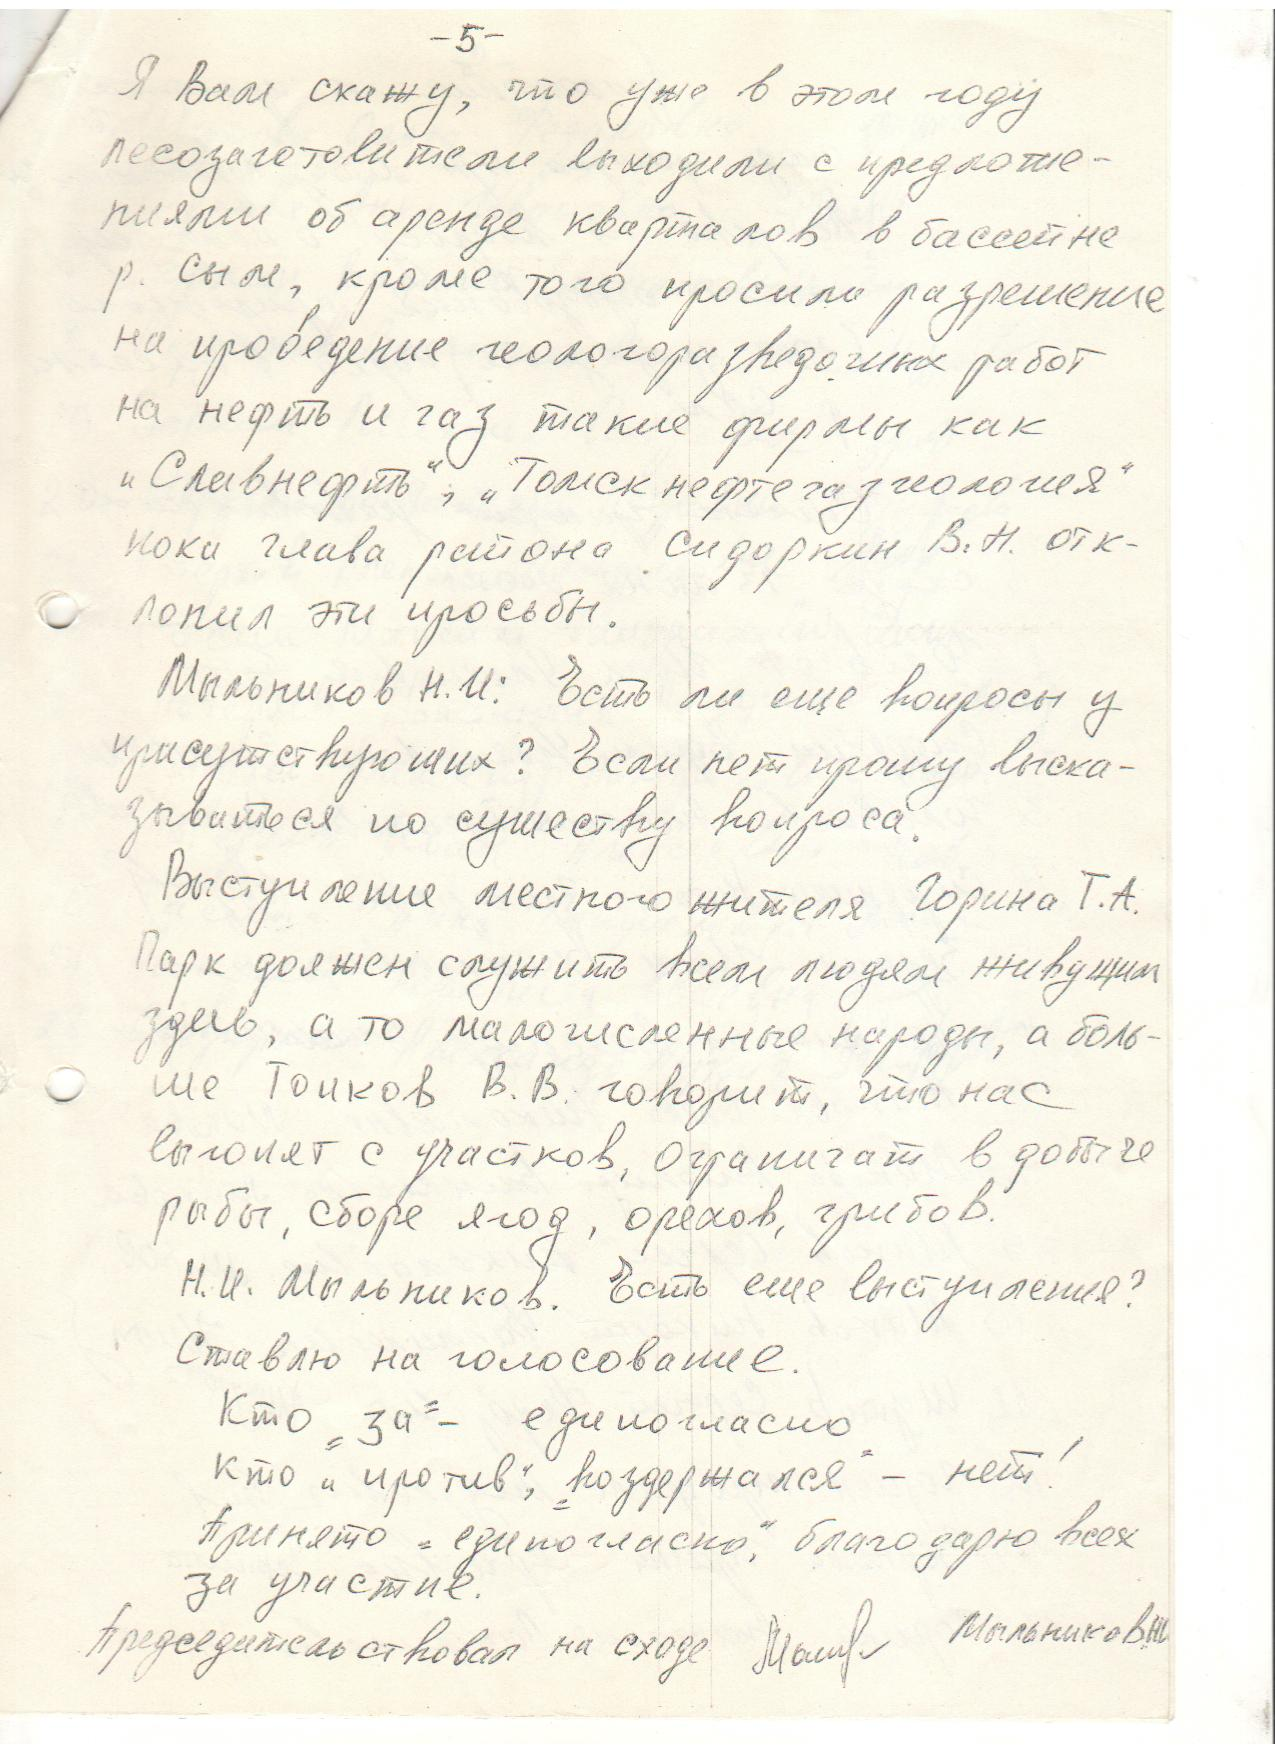 -5-
Я Вам скажу, что уже в этом году
лесозаготовители выходили с предложе-
ниями об аренде кварталов в бассейне
р. Сым, кроме того просили разрешение
на проведение геологоразведочных работ
на нефть и газ такие фирмы как
„Славнефть", „Томскнефтегазгеология"
пока глава района Сидоркин В.Н. отк-
лонил эти просьбы.
Мыльников Н.И: Есть ли еще вопросы у
присутствующих? Если нет прошу выска-
зываться по существу вопроса.
Выступление местного жителя Горина Т.А.
Парк должен служить всем людям живущим
здесь, а то малочисленные народы, а боль-
ше Топков В.В. говорит, что нас
выгонят с участков, ограничат в добыче
рыбы, сборе ягод, орехов, грибов.
Н.И. Мыльников. Есть еще выступления?
Ставлю на голосование.
Кто „за" - единогласно
Кто „против", „воздержался" - нет!
Принято „единогласно", благодарю всех
за участие.
Председательствовал на сходе Мыльников Н.И